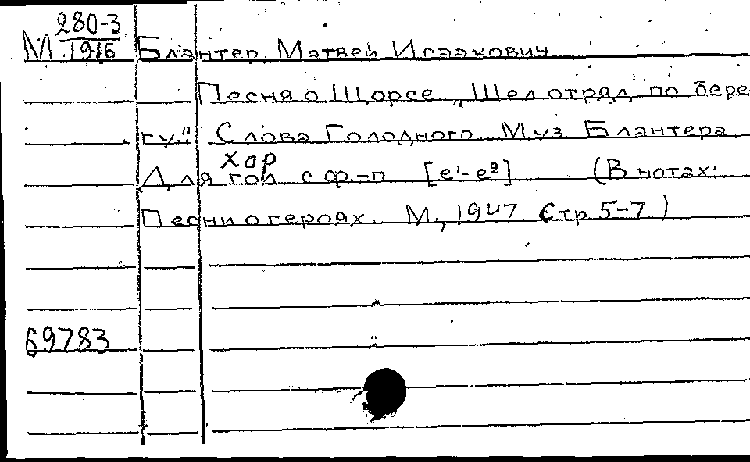 280-3
М. 1916 Блантер, Матвей Исаакович
Песня о Щорсе „Шел отряд по бере-
гу". Слова Голодного. Муз. Блантера
хор
Для гол. с ф-п. [e¹-e²] (В нотах:
Песни о героях. М., 1947 Стр. 5-7)
69783